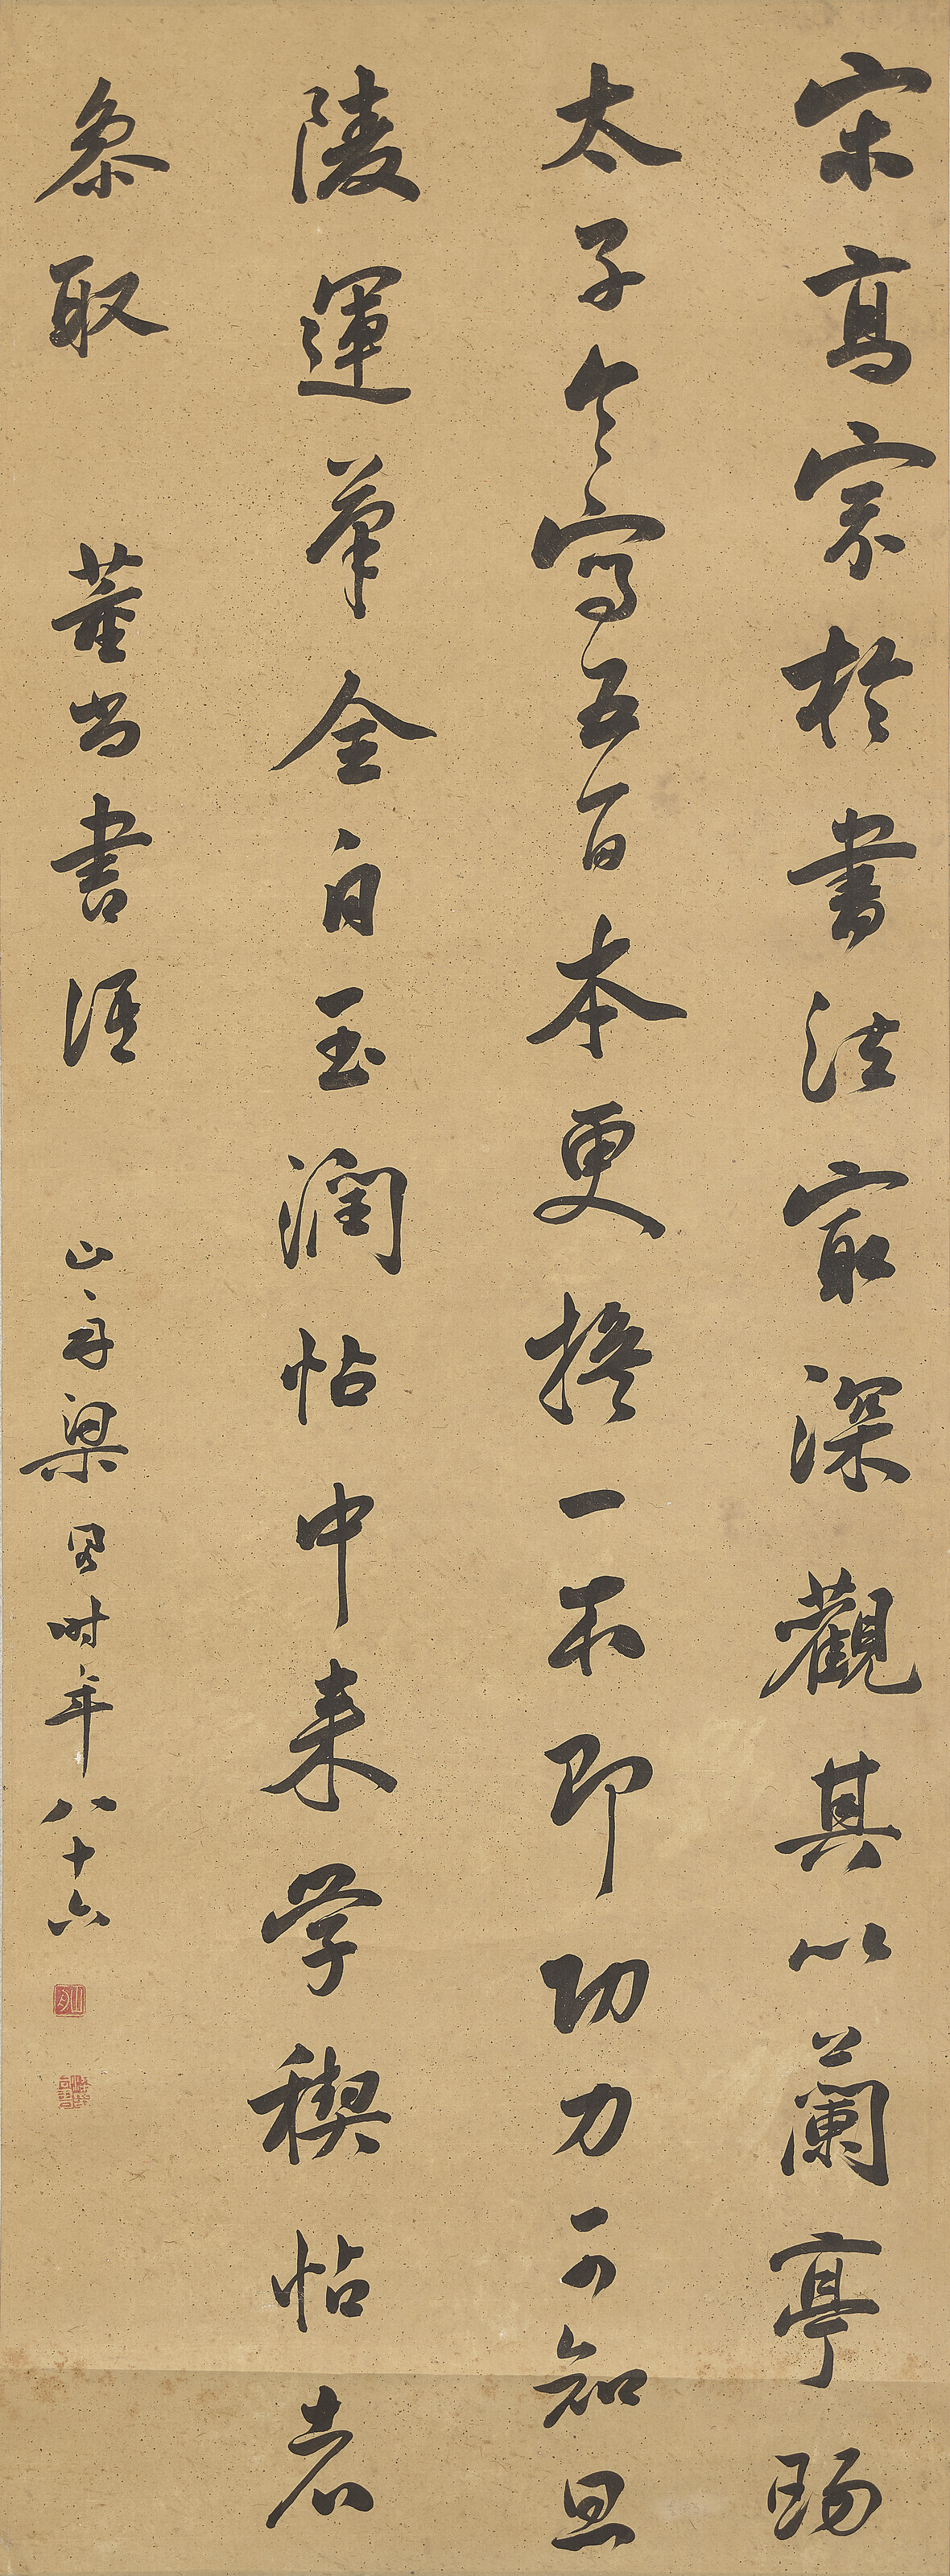 宋高宗於書法㝡深觀其以蘭亭賜
太子令寫五百本更換一本即功力可知思
陵運筆全自玉潤帖中来学禊帖者
叅取 董尚書語 山舟梁同書時年八十六
山舟